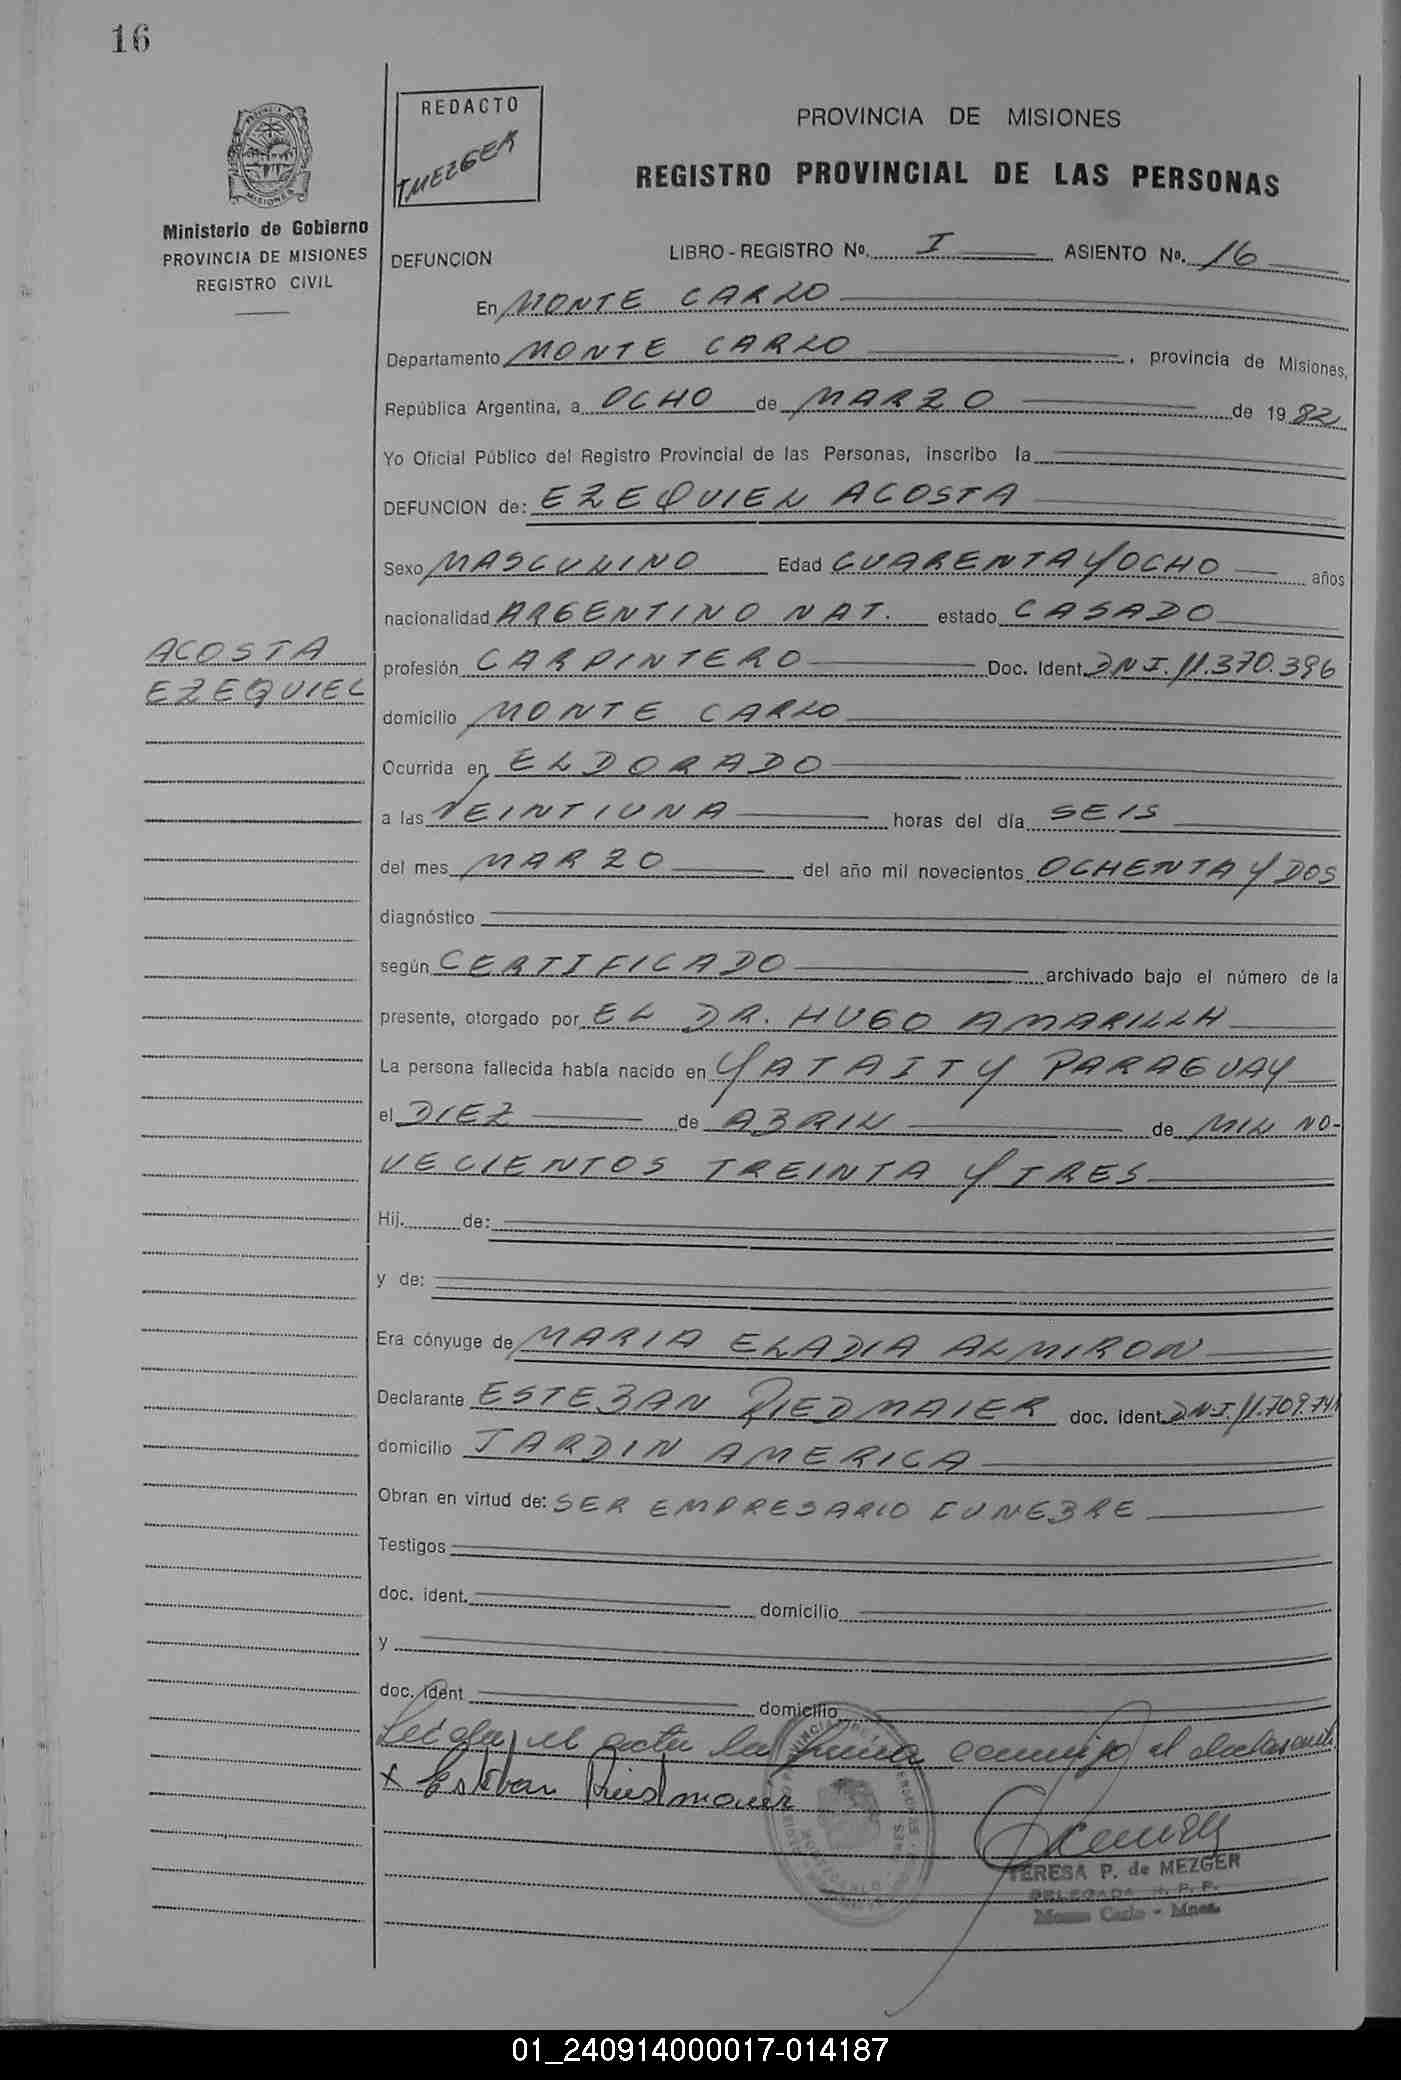 16
REDACTO
T MEZGER
PROVINCIA DE MISIONES
REGISTRO PROVINCIAL DE LAS PERSONAS
Ministerio de Gobierno
PROVINCIA DE MISIONES
REGISTRO CIVIL
DEFUNCION LIBRO - REGISTRO Nº. I ASIENTO Nº. 16
En MONTE CARLO
Departamento MONTE CARLO, provincia de Misiones,
República Argentina, a OCHO de MARZO de 1982
Yo Oficial Público del Registro Provincial de las Personas, inscribo la
DEFUNCION de: EZEQUIEL ACOSTA
Sexo MASCULINO Edad CUARENTA Y OCHO años
nacionalidad ARGENTINO NAT. estado CASADO
ACOSTA
EZEQUIEL
profesión CARPINTERO Doc. Ident. DNI. 11.370.396
domicilio MONTE CARLO
Ocurrida en ELDORADO
a las VEINTIUNA horas del día SEIS
del mes MARZO del año mil novecientos OCHENTA Y DOS
diagnóstico
según CERTIFICADO archivado bajo el número de la
presente, otorgado por EL DR. HUGO AMARILLA
La persona fallecida había nacido en YATAITY PARAGUAY
el DIEZ de ABRIL de MIL NO-
VECIENTOS TREINTA Y TRES
Hij. de:
y de:
Era cónyuge de MARIA ELADIA ALMIRON
Declarante ESTEBAN RIEDMAIER doc. ident. DNI. 11.709.741
domicilio JARDIN AMERICA
Obran en virtud de: SER EMPRESARIO FUNEBRE
Testigos
doc. ident. domicilio
y
doc. ident domicilio
Leída el acta la firma conmigo el declarante
x Esteban Riedmaier
TERESA P. de MEZGER
DELEGADA R. P. P.
Monte Carlo - Mnes.
01_240914000017-014187